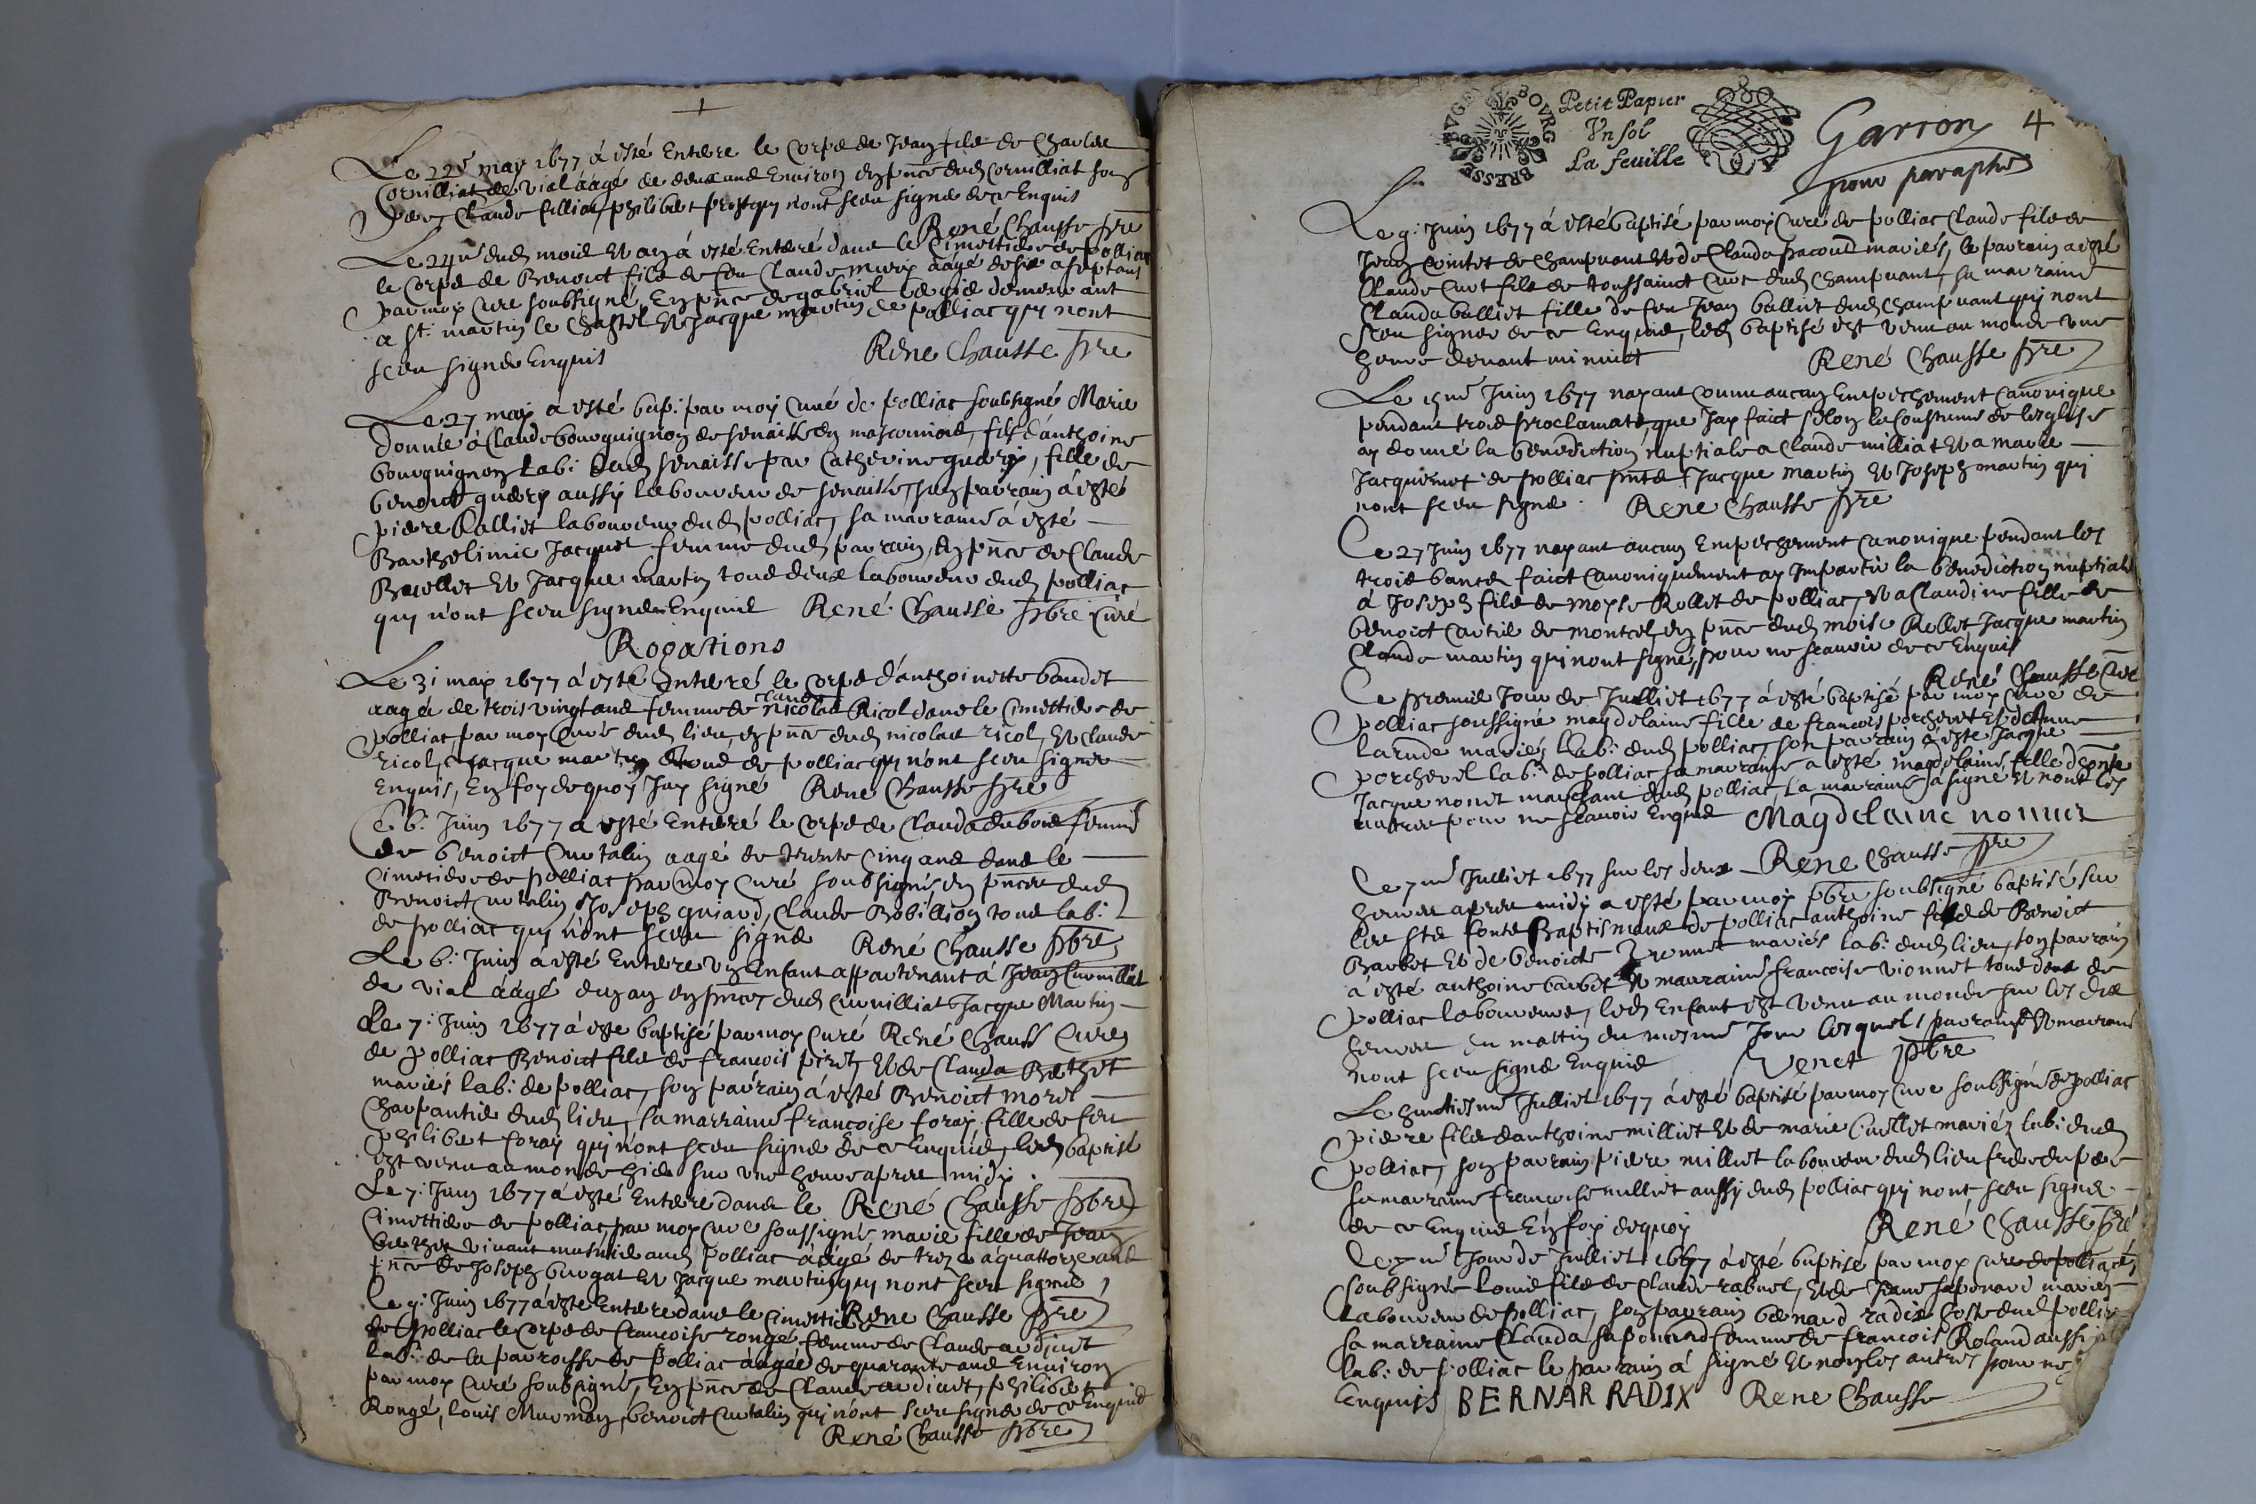 Le 22e may 1677 à esté Enterre le corps de Jean fils de Charles
Cornilliat de Vial aagé de deux ans Environ En pnce dud Cornilliat son
pere Claude fillia, philibert qui nont sceu signer de ce Enquis
René Chausse pbre
Le 24me dud mois et an à esté Enterré dans le Cimettiere de polliac
le corps de Benoict fils de feu Claude aagé de six a sept ans
par moy Cure soubsigné, En pnce de gabriel demeurant
a St martin le Chastel et Jacque martin de polliac qui nont
sceu signer Enquis René Chausse pbre
Le 27 may à esté bap: par moy Curé de polliac soubsigné Marie
donnée à Claude bourguignon de senaisse en masconnois, fils d'anthoine
bourguignon labr dud senaisse par Catherine guerry, fille de
benoict guerry aussy laboureur de senaisse, son parrain à esté
pierre Ralliet laboureur dud polliac, sa marraine à esté
Barthelimie Jacquet femme dud parrain, En pnce de Claude
Brevellet et Jacque martin tous deux laboureurs dud polliac
qui n'ont sceu signer Enquis René Chausse pbre Curé
Rogations
Le 31 may 1677 à esté Enterré le corps d'anthoinette baudet
aagée de trois vingt ans femme de claude nicolas Ricol dans le Cimettiere de
polliac par moy Curé dud lieu, en pnce dud nicolas ricol, et claude
ricol, Jacque martin tous de polliac qui n'ont sceu signer
Enquis, En foy de quoy Jay signé René Chausse pbre
Le 6: Juin 1677 à esté Enterré le corps de Clauda dubois femme
de benoict Curtalin aagé de trente cinq ans dans le
Cimetiere de polliac par moy Curé soubsigné, en pnce dud
Benoict Curtalin Joseph guiard, Claude Robillion tous lab:
de polliac qui n'ont sceu signe René Chausse pbre
Le 6: Juin à esté Enterre un Enfant appartenant à Jean Cornilliat
de vial aagé d'un an en pnces dud Cornilliat Jacque Martin
Le 7: Juin 1677 à esté baptisé par moy Curé René Chauss Curé
de polliac Benoict fils de francois piret, et de Clauda Berthet
mariés lab: de polliac, son parrain à esté Benoict morel
Charpantier dud lieu, sa marraine francoise foray, fille de feu
philibert foray qui n'ont sceu signe de ce Enquis, led baptisé
est venu au monde hier sur une heure apres midy.
Le 7: Juin 1677 à esté Enterre dans le René Chausse pbre
Cimettiere de polliac par moy Cure soussigné marie fille de Jean
berthet vivant musnier aud polliac aagé de treze a quattorze ans
pnce de Joseph burgat et Jacque martin qui nont sceu signer
Le 9: Juin 1677 à esté Enterre dans le Cimettiere René Chausse pbre
de polliac le corps de francoise rongé femme de Claude
lab: de la paroisse de polliac aagée de quarante ans Environ
par moy Curé soubsigné, En pnce de Claude philibert
Rongé, louis Murmay, benoict Curtalin qui n'ont sceu signer de ce Enquis
René Chausse pbre
BVGEY BOVRG BRESSE
Petit Papier
Vn sol
La feuille
Garron 4
pour paraphe
Le 9: Juin 1677 à esté baptisé par moy Curé de polliac Claude fils de
Jean Cointet de Champvant et de Clauda pacoud mariés, le parrain a esté
Claude Curt fils de toussainct Curt dud Champvant, sa marraine
Clauda balliet fille de feu Jean balliet dud Champvant qui nont
sceu signer de ce Enquis, led baptisé est venu au monde une
heure devant minuict René Chausse pbre
Le 15me Juin 1677 nayant connu aucun Empechement Canonique
pendant trois proclamatz que Jay faict selon la Coustume de leglise
ay donné la benediction nuptiale a Claude milliat et a marie
Jacquemet de polliac pnts Jacque martin et Joseph martin qui
nont sceu signe René Chausse pbre
Le 27 Juin 1677 nayant aucun Empechement Canonique pendant les
trois bances faict Canoniquement ay Imparti la benediction nuptiale
à Joseph fils de moyse Rollet de polliac, et a Claudine fille de
benoict de montcel, en pnce dud moise Rollet Jacque martin
Claude martin qui nont signé, pour ne scavoir de ce Enquis
René Chausse Cure
Le premie Jour de Juilliet 1677 à esté baptisé par moy Curé de
polliac soussigné magdelaine fille de francois porcheret et d'Anne
larude mariés lab: dud polliac, son parrain à esté Jacque
porcherel lab: de polliac sa marraine a esté magdelaine fille d'honte
Jacque nonet marchant dud polliac, la marraine à signé et nont les
autres pour ne scavoir Enquis Magdelaine nonnet
René Chausse pbre
Le 7me Julliet 1677 sur les deux
heures apres midy a esté par moy pbre soubsigné baptisé sur
les sts fonts Baptismaux de polliac anthoine fils de Benoict
Barbet et de benoicte mariés lab: dud lieu, son parrain
à esté anthoine barbet et marraine francoise vionnet tous deux de
polliac laboureurs, led Enfant est venu au monde sur les dix
heures du mattin du mesme Jour lesquels parrain et marraine
nont sceu signe Enquis Venet pbre
Le huictiesme Julliet 1677 à esté baptisé par moy Cure soubsigné de polliac
pierre fils d'anthoine milliet et de marie Cuellet mariéz lab: dud
polliac, son parrain pierre milliet laboureur dud lieu frere du pere
sa marraine francoise milliet aussy dud polliac qui nont sceu signe
de ce Enquis En foy de quoy René Chausse pbre
Le me Jour de Julliet 1677 à esté baptisé par moy Cure de polliac
soubsigné louis fils de Claude rabuel, et de Jeane saponard mariez
laboureur de polliac, son parrain bernard radix hoste dud pollia
sa marraine Clauda saponard femme de francois Roland aussi
lab: de polliac le parrain à signé et non les autres pour ne
Enquis BERNAR RADIX Rene Chausse